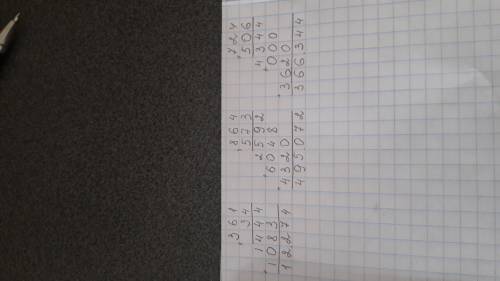 361
34
1444
1083
12.274
864
573
2592
6048
4320
495.072
724
506
4344
000
3620
366.344